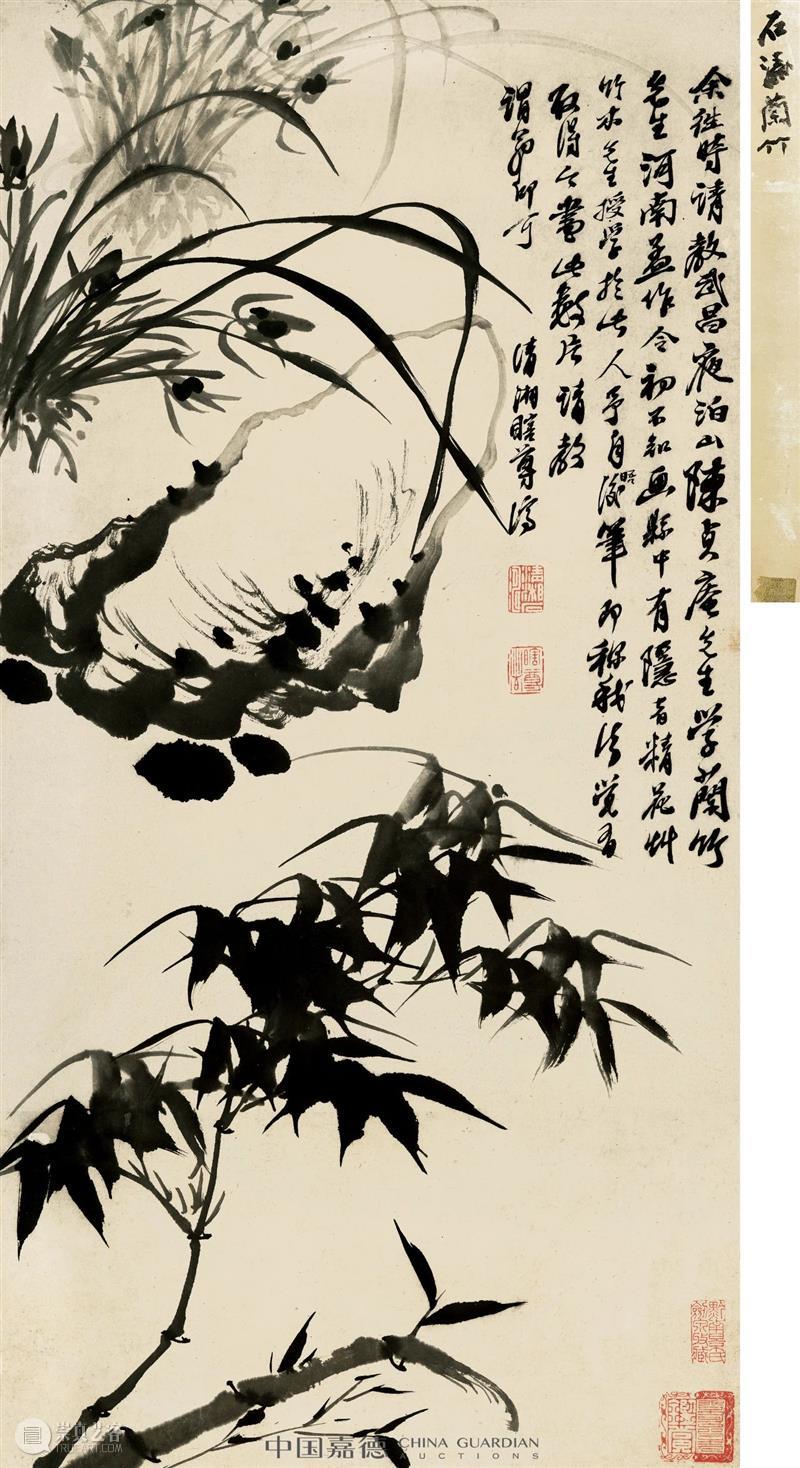 石濤蘭竹
余往時請教武昌夜泊山陳貞庵先生學蘭竹
先生河南孟作令初不知画縣中有隱者精花艸
竹木先生授學於此人予自潑筆即稱我法覺有
取得之畫此數片請教
謂翁即可
清湘瞎尊濟
崇真艺客
TRUEART.COM
中国嘉德
CHINA GUARDIAN
AUCTIONS